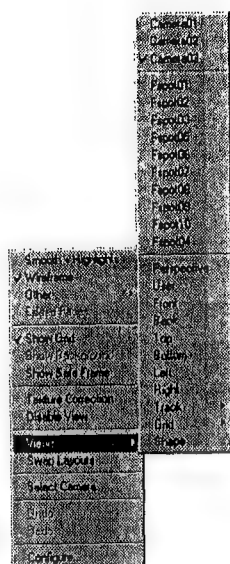 Camera01
Camera02
Camera03
Fspot01
Fspot02
Fspot03
Fspot05
Fspot06
Fspot07
Fspot08
Fspot09
Fspot10
Fspot04
Perspective
User
Front
Back
Top
Bottom
Left
Right
Track
Grid
Shape
Smooth + Highlights
Wireframe
Other
Edged Faces
Show Grid
Show Background
Show Safe Frame
Texture Correction
Disable View
Views
Swap Layouts
Select Camera
Undo
Redo
Configure...